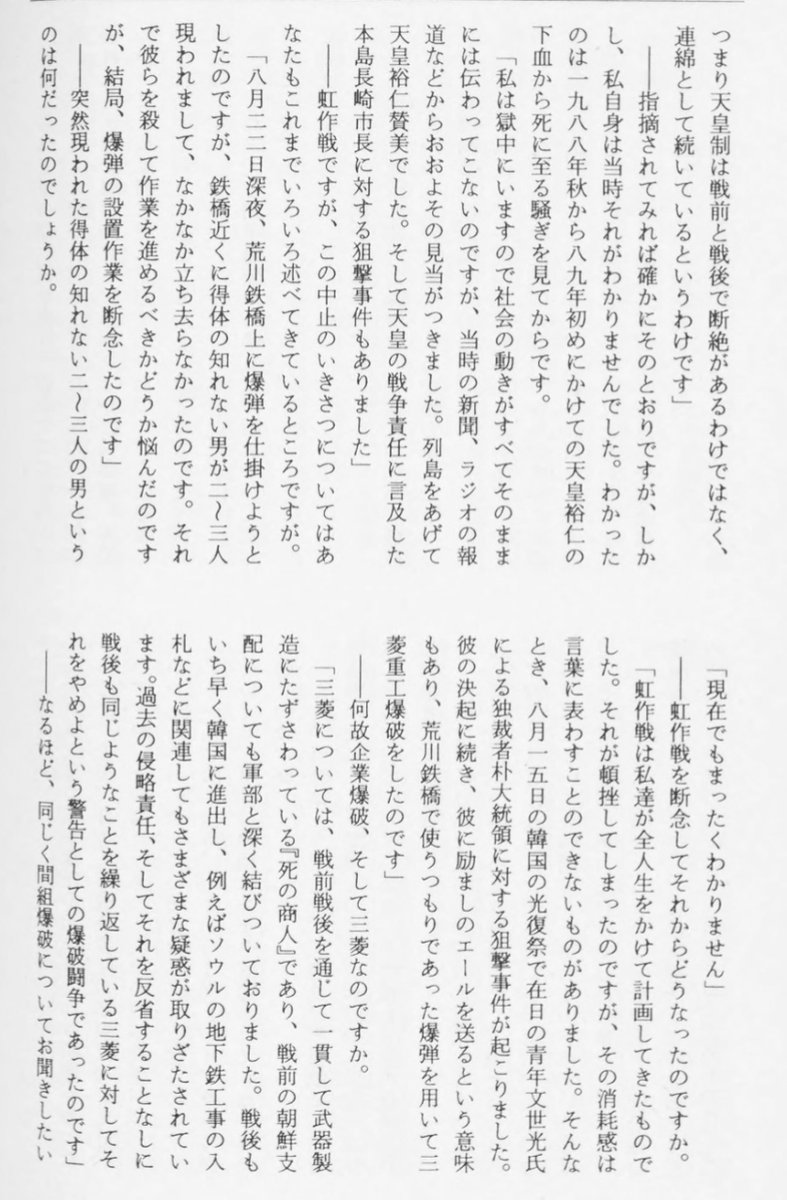 つまり天皇制は戦前と戦後で断絶があるわけではなく、
連綿として続いているというわけです」
――指摘されてみれば確かにそのとおりですが、しか
し、私自身は当時それがわかりませんでした。わかった
のは一九八八年秋から八九年初めにかけての天皇裕仁の
下血から死に至る騒ぎを見てからです。
「私は獄中にいますので社会の動きがすべてそのまま
には伝わってこないのですが、当時の新聞、ラジオの報
道などからおおよその見当がつきました。列島をあげて
天皇裕仁賛美でした。そして天皇の戦争責任に言及した
本島長崎市長に対する狙撃事件もありました」
――虹作戦ですが、この中止のいきさつについてはあ
なたもこれまでいろいろ述べてきているところですが。
「八月二二日深夜、荒川鉄橋上に爆弾を仕掛けようと
したのですが、鉄橋近くに得体の知れない男が二〜三人
現われまして、なかなか立ち去らなかったのです。それ
で彼らを殺して作業を進めるべきかどうか悩んだのです
が、結局、爆弾の設置作業を断念したのです」
――突然現われた得体の知れない二〜三人の男という
のは何だったのでしょうか。
「現在でもまったくわかりません」
――虹作戦を断念してそれからどうなったのですか。
「虹作戦は私達が全人生をかけて計画してきたもので
した。それが頓挫してしまったのですが、その消耗感は
言葉に表わすことのできないものがありました。そんな
とき、八月一五日の韓国の光復祭で在日の青年文世光氏
による独裁者朴大統領に対する狙撃事件が起こりました。
彼の決起に続き、彼に励ましのエールを送るという意味
もあり、荒川鉄橋で使うつもりであった爆弾を用いて三
菱重工爆破をしたのです」
――何故企業爆破、そして三菱なのですか。
「三菱については、戦前戦後を通じて一貫して武器製
造にたずさわっている『死の商人』であり、戦前の朝鮮支
配についても軍部と深く結びついておりました。戦後も
いち早く韓国に進出し、例えばソウルの地下鉄工事の入
札などに関連してもさまざまな疑惑が取りざたされてい
ます。過去の侵略責任、そしてそれを反省することなしに
戦後も同じようなことを繰り返している三菱に対してそ
れをやめよという警告としての爆破闘争であったのです」
――なるほど、同じく間組爆破についてお聞きしたい